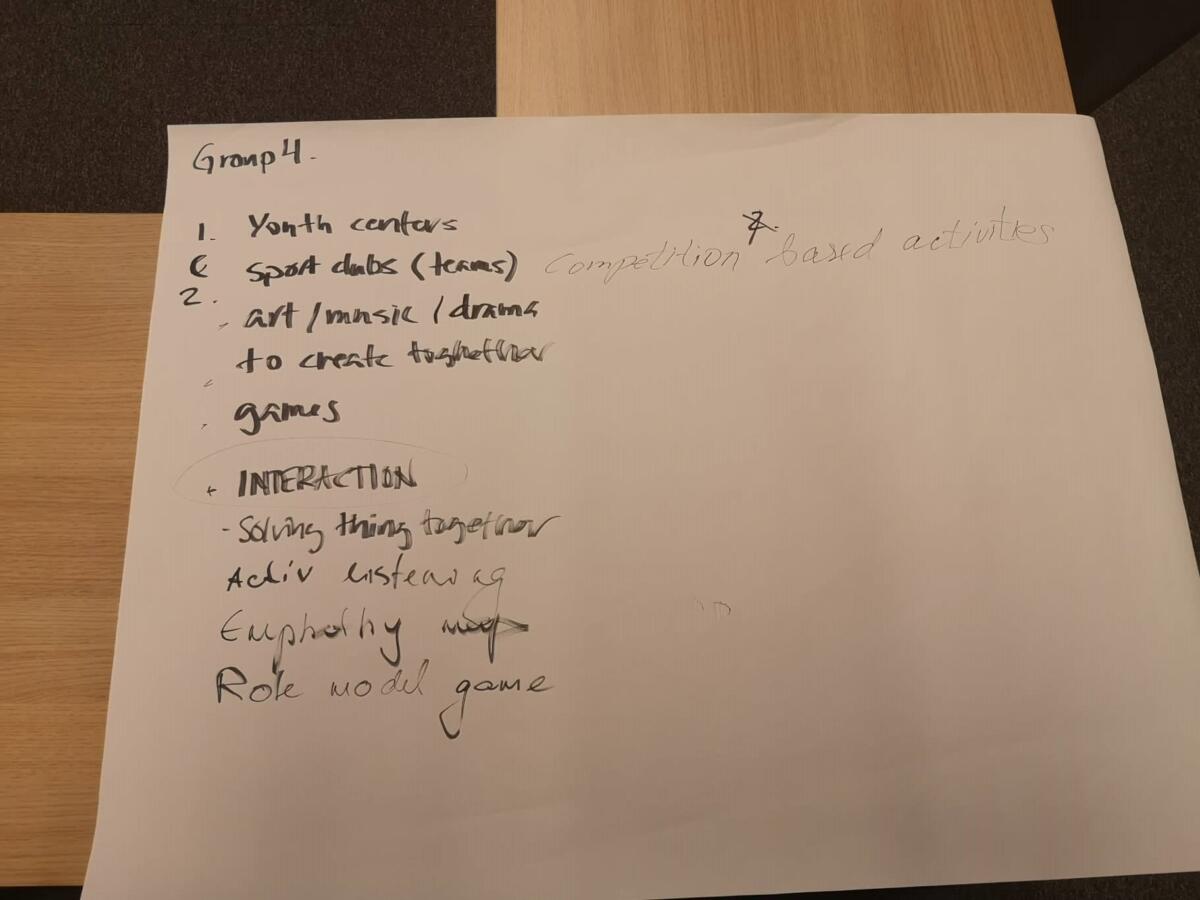 Group 4.
1. Youth centers
sport clubs (teams) Competition based activities
2. art / music / drama
to create toghether
games
+ INTERACTION
- Solving thing together
Activ listening
Emphothy map
Role model game